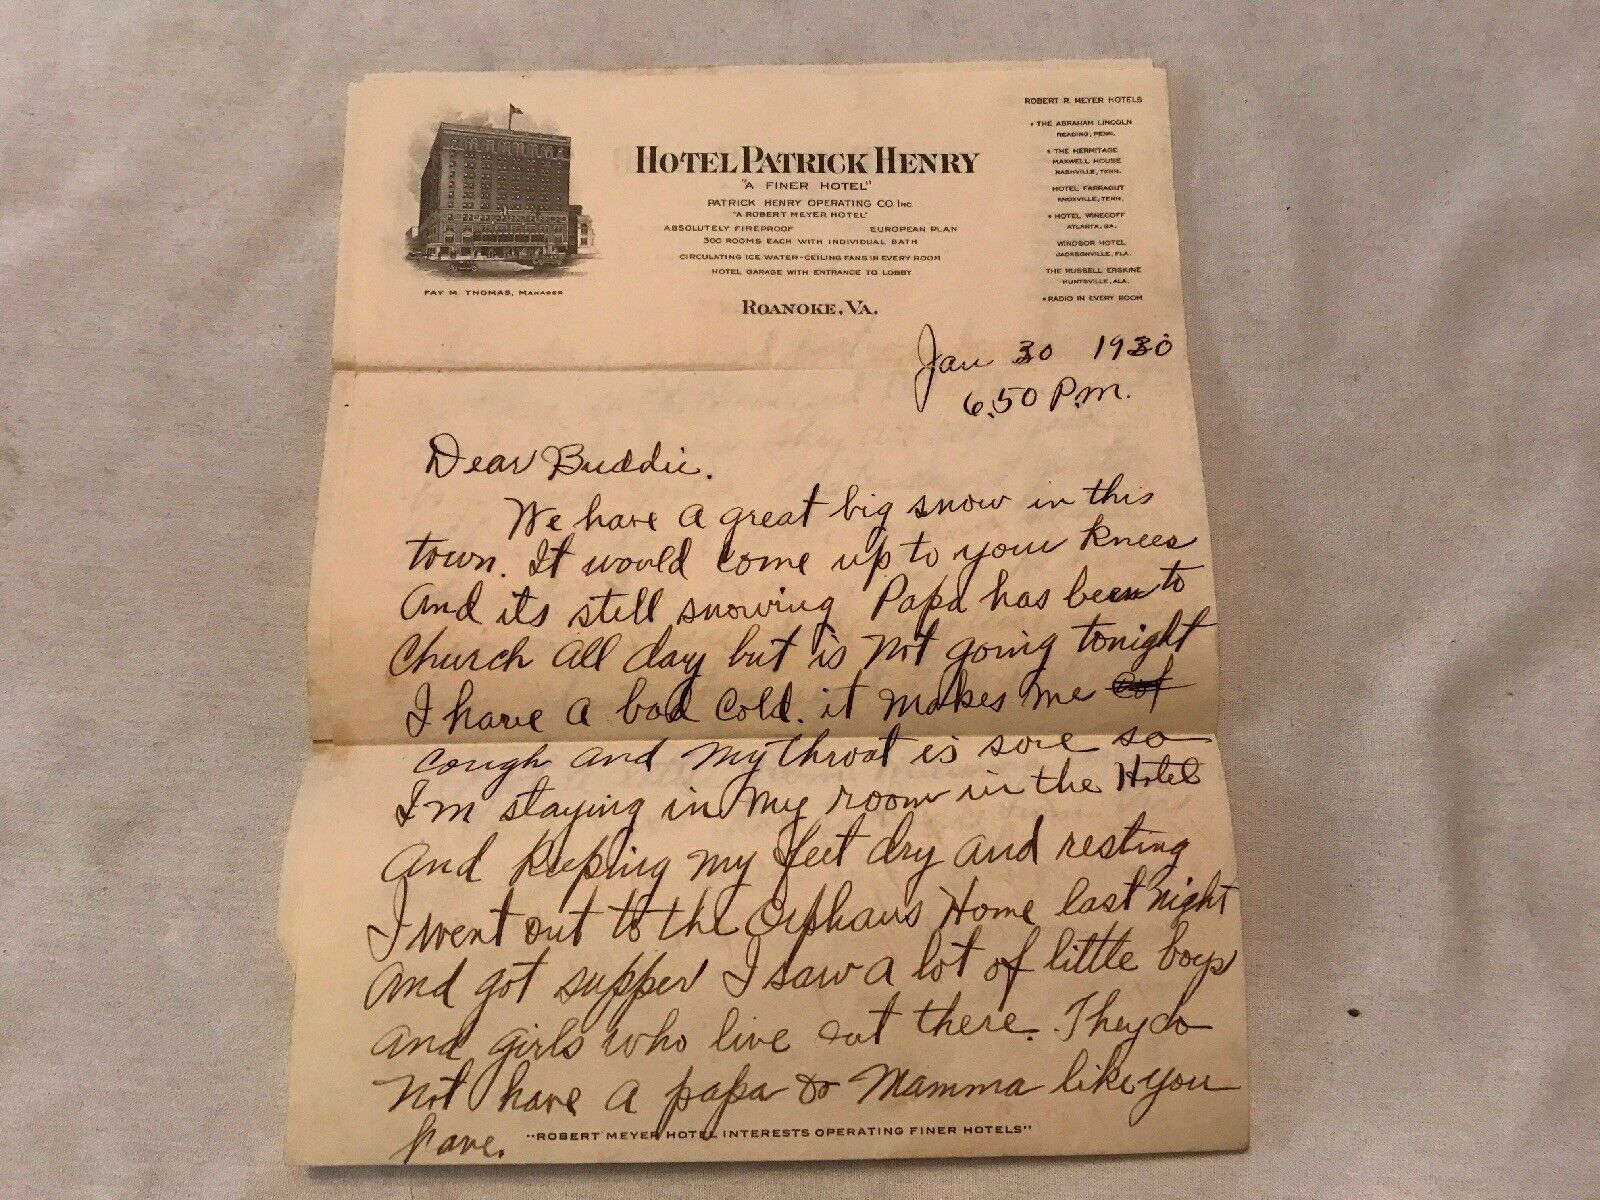 ROBERT R. MEYER HOTELS
• THE ABRAHAM LINCOLN
READING, PENN.
• THE HERMITAGE
MAXWELL HOUSE
NASHVILLE, TENN.
HOTEL FARRAGUT
KNOXVILLE, TENN.
• HOTEL WINECOFF
ATLANTA, GA.
WINDSOR HOTEL
JACKSONVILLE, FLA.
THE RUSSELL ERSKINE
HUNTSVILLE, ALA.
• RADIO IN EVERY ROOM
HOTEL PATRICK HENRY
"A FINER HOTEL"
PATRICK HENRY OPERATING CO. INC.
"A ROBERT MEYER HOTEL"
ABSOLUTELY FIREPROOF EUROPEAN PLAN
300 ROOMS EACH WITH INDIVIDUAL BATH
CIRCULATING ICE WATER-CEILING FANS IN EVERY ROOM
HOTEL GARAGE WITH ENTRANCE TO LOBBY
FAY M. THOMAS, MANAGER
ROANOKE, VA.
Jan 30 1930
6.50 P.m.
Dear Buddie.
We have a great big snow in this
town. It would come up to your knees
And its still snowing Papa has been to
Church all day but is not going tonight
I have a bad cold. it makes me
cough and my throat is sore so
I'm staying in my room in the Hotel
And keeping my feet dry and resting
I went out to the Orphans Home last night
And got supper I saw a lot of little boys
and girls who live out there. They do
Not have a papa & Mamma like you
have.
"ROBERT MEYER HOTEL INTERESTS OPERATING FINER HOTELS"